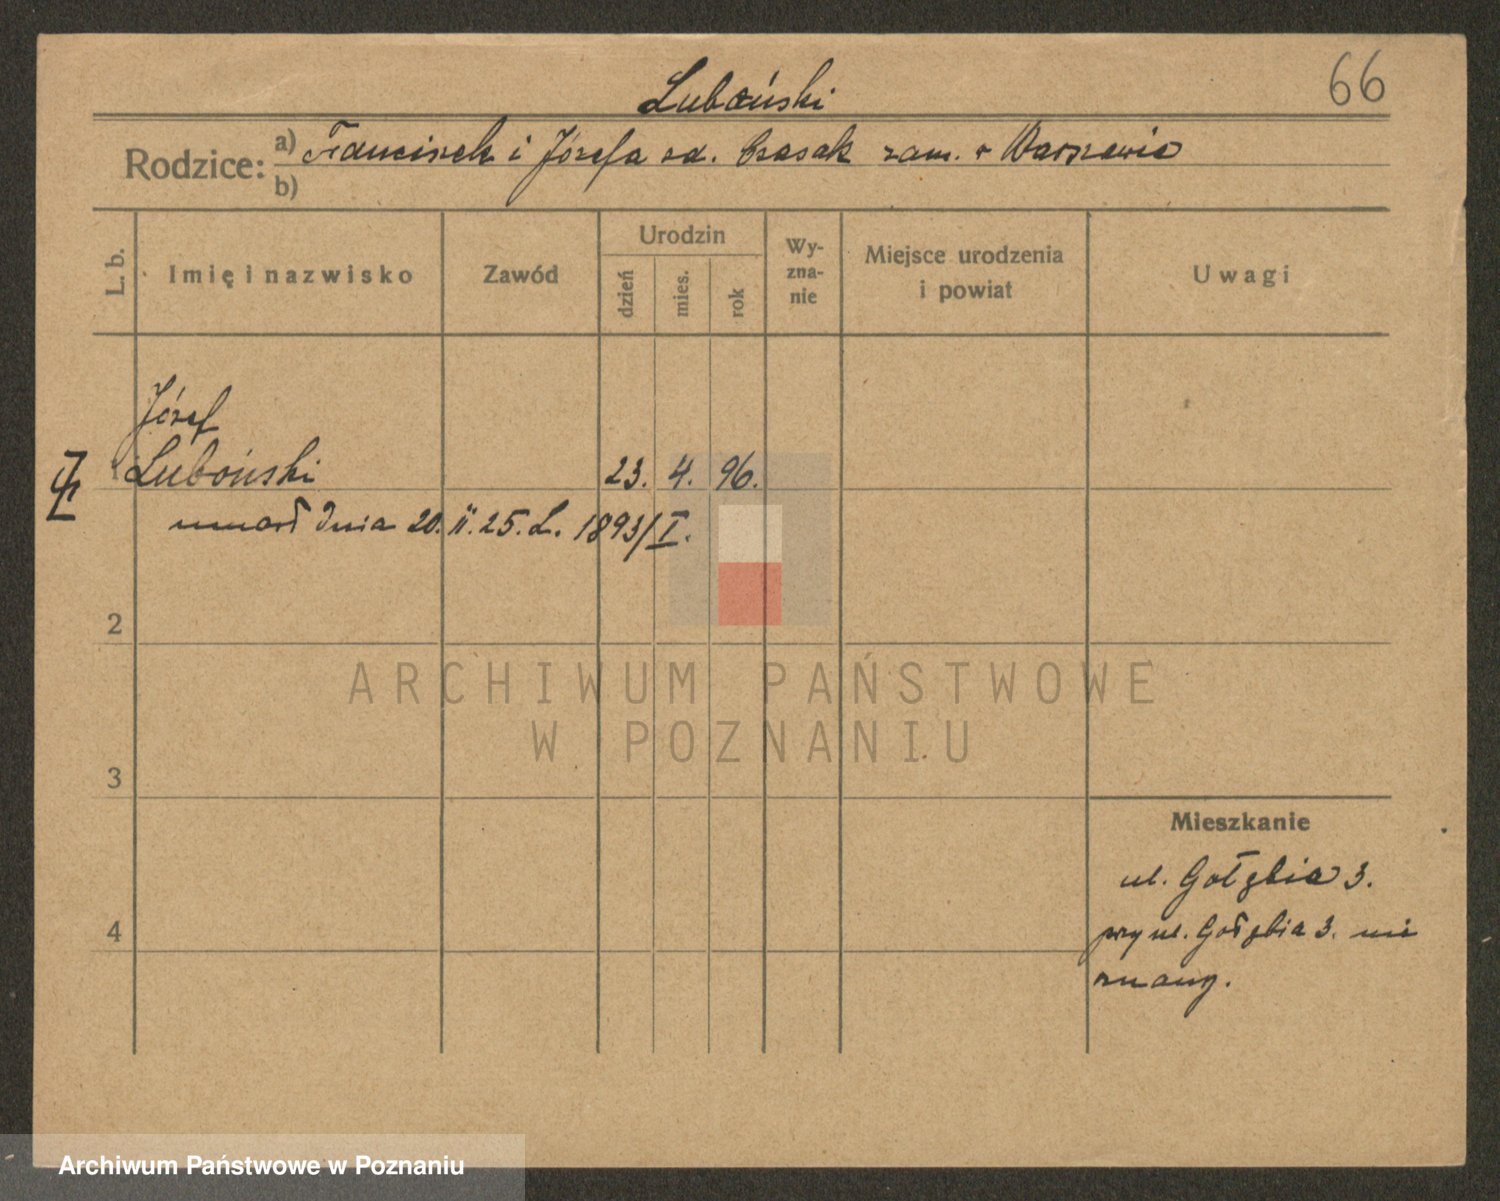 66
Luboński
Rodzice: a) Franciszek i Józefa zd. Czasak zam. w Warszawie
b)
L. b.
Imię i nazwisko
Zawód
Urodzin
dzień
mies.
rok
Wy-
zna-
nie
Miejsce urodzenia
i powiat
Uwagi
Józef
1 Luboński 23. 4. 96.
umarł dnia 20. II. 25. L. 1893/I.
2
ARCHIWUM PAŃSTWOWE
W POZNANIU
3
Mieszkanie
ul. Gołębia 3.
4
przy ul. Gołębia 3. nie
znany.
Archiwum Państwowe w Poznaniu